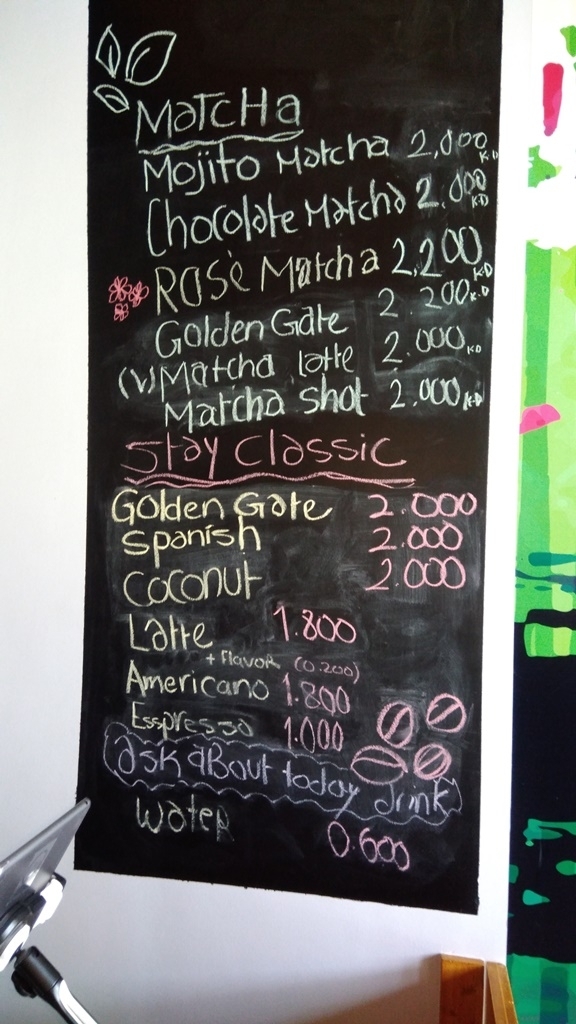 Matcha
Mojito Matcha 2,000 K.D
Chocolate Matcha 2.000 K.D
Rosè Matcha 2,200 K.D
Golden Gate 2.200 K.D
(V) Matcha latte 2.000 K.D
Matcha shot 2.000 K.D
Stay Classic
Golden Gate 2.000
Spanish 2.000
Coconut 2.000
Latte 1.800
+ Flavor (0.200)
Americano 1.800
Esspresso 1.000
ask about today drink
Water 0.600